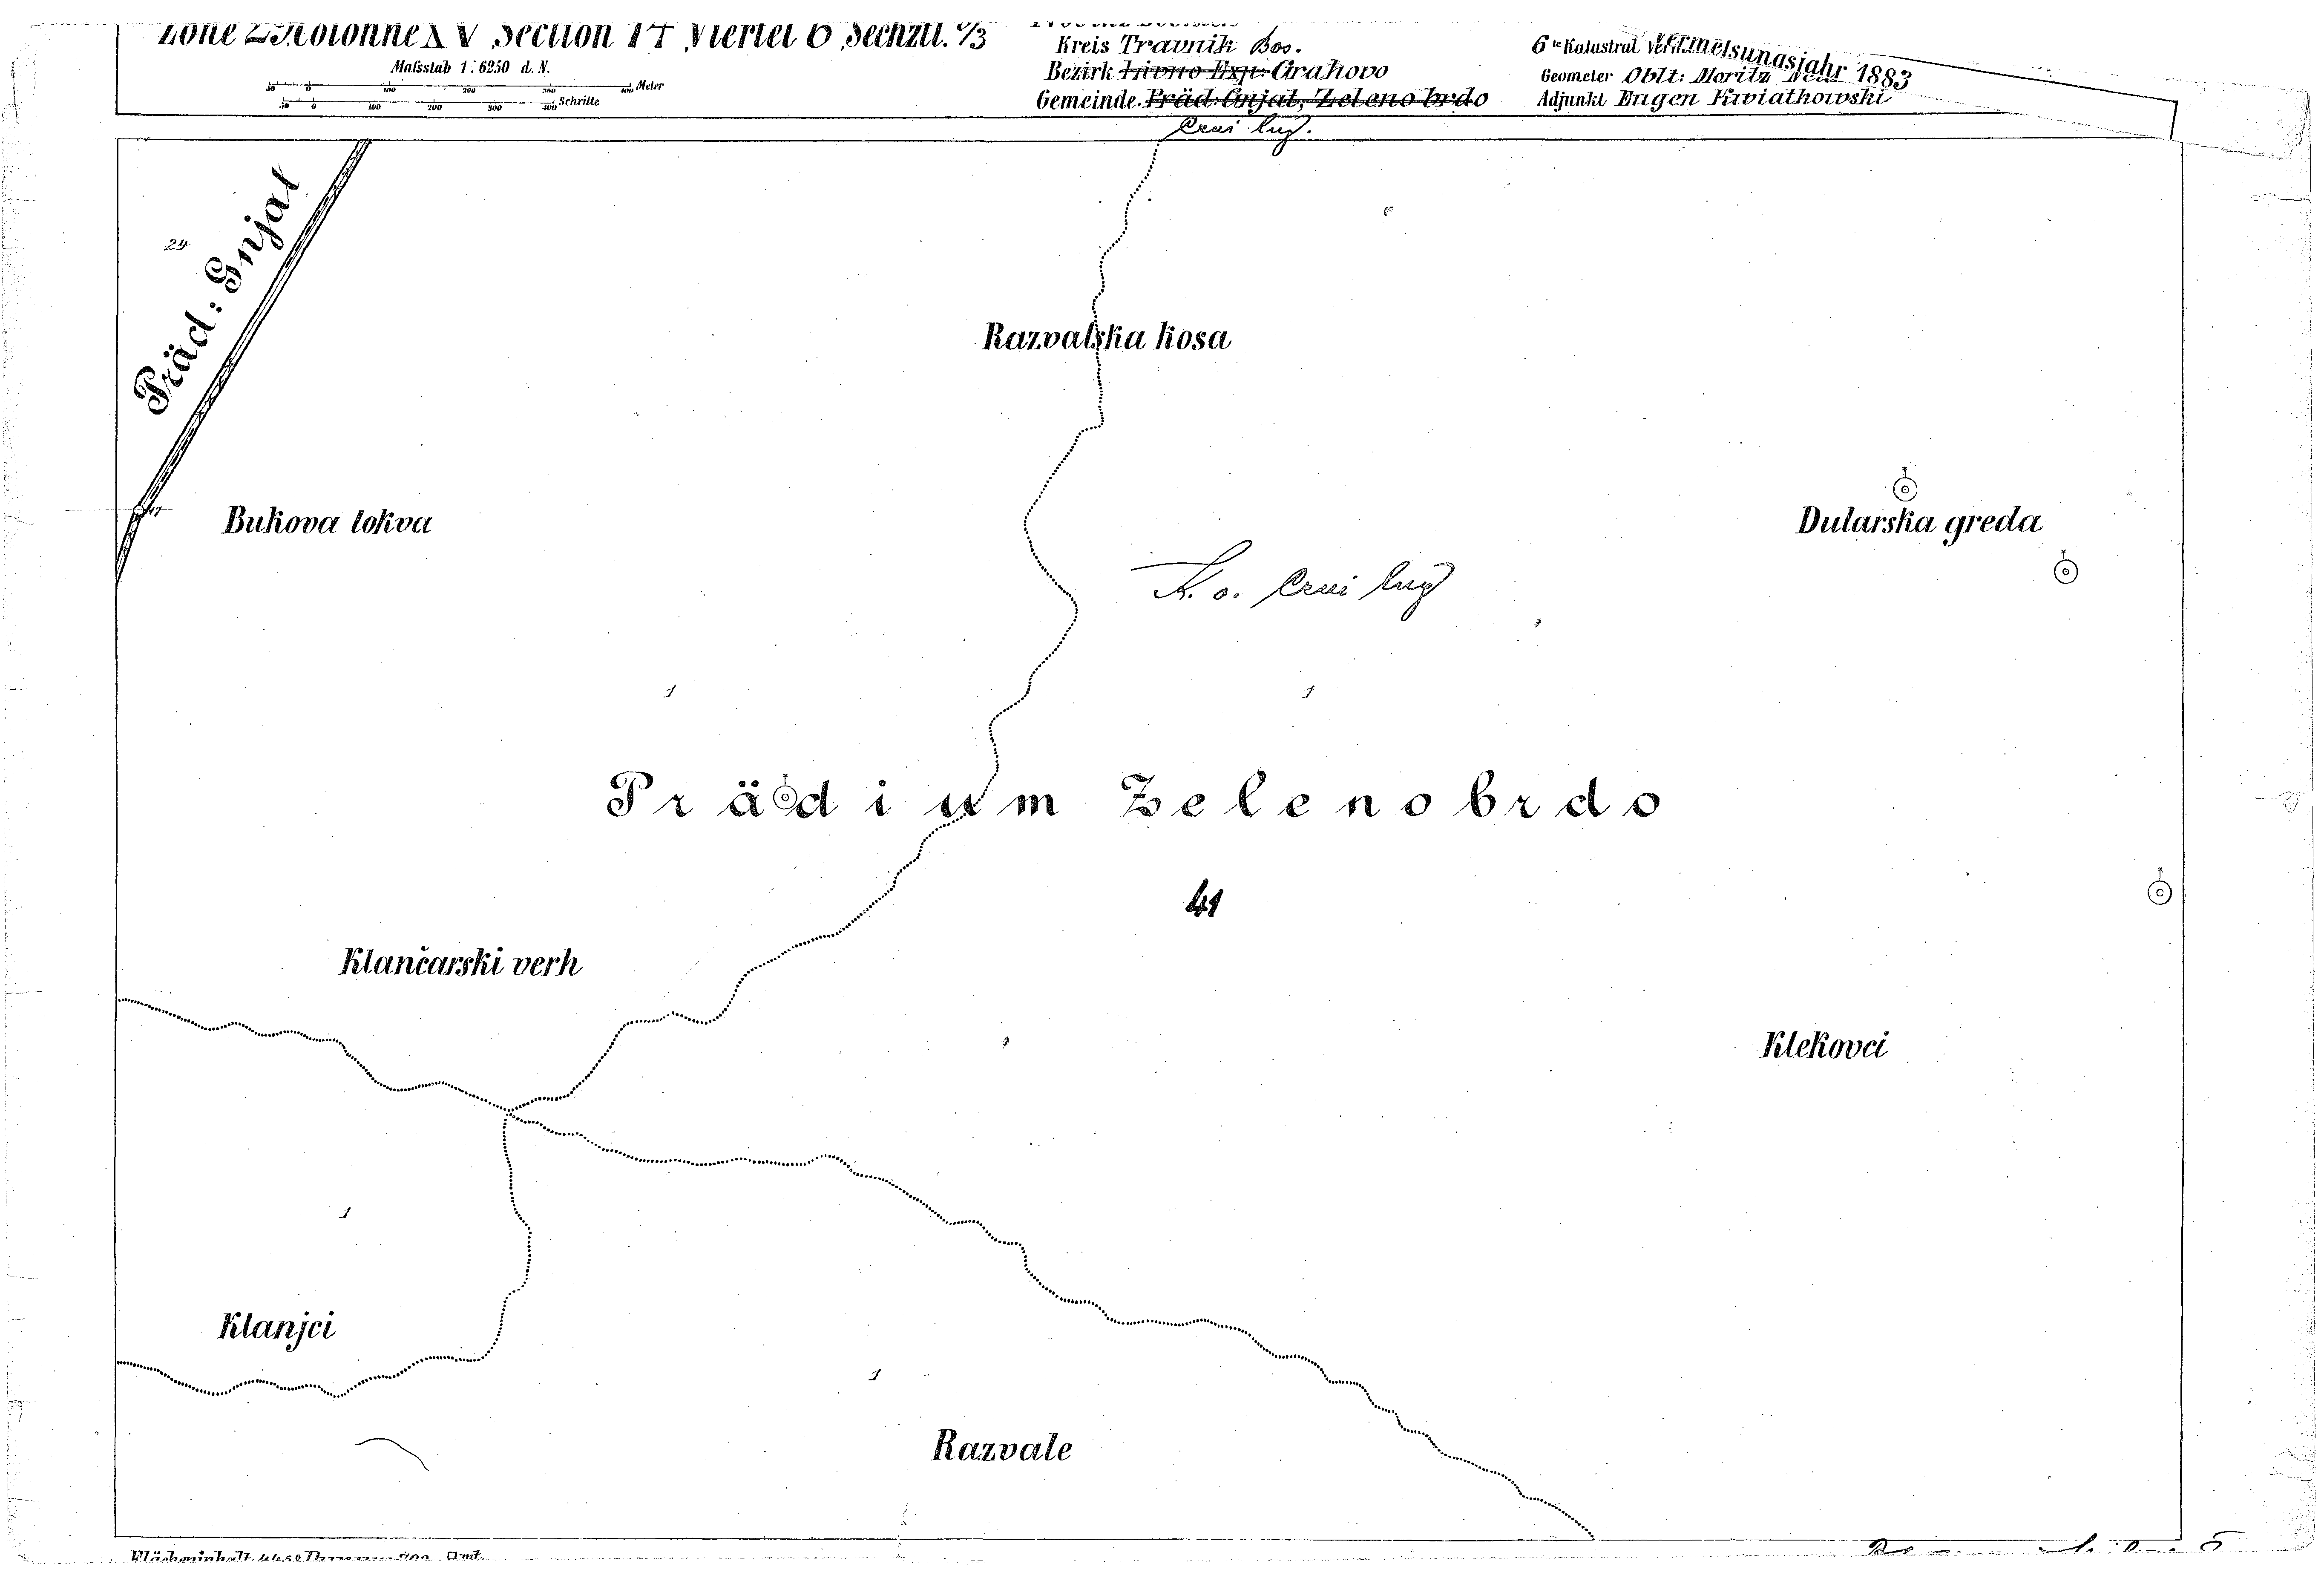 Section 14 Viertel 6 Sechztl. 2/3
Maſsstab 1:6250 d. N.
50 0 100 200 300 400 Meter
50 0 100 200 300 400 Schritte
Kreis Travnik Bos.
Bezirk Livno Exp: Grahovo
Gemeinde. Präd: Gnjat, Zeleno brdo
Crni lug.
6te Katastral Vermeſsungsjahr 1883
Geometer Oblt: Moritz
Adjunkt Eugen Kwiatkowski
Präd: Gnjat
24
Razvalska kosa
Bukova lokva
Dularska greda
K. o. Crni lug
1
1
Prädium Zelenobrdo
41
Klančarski verh
Klekovci
1
Klanjci
1
Razvale
Flächeninhalt